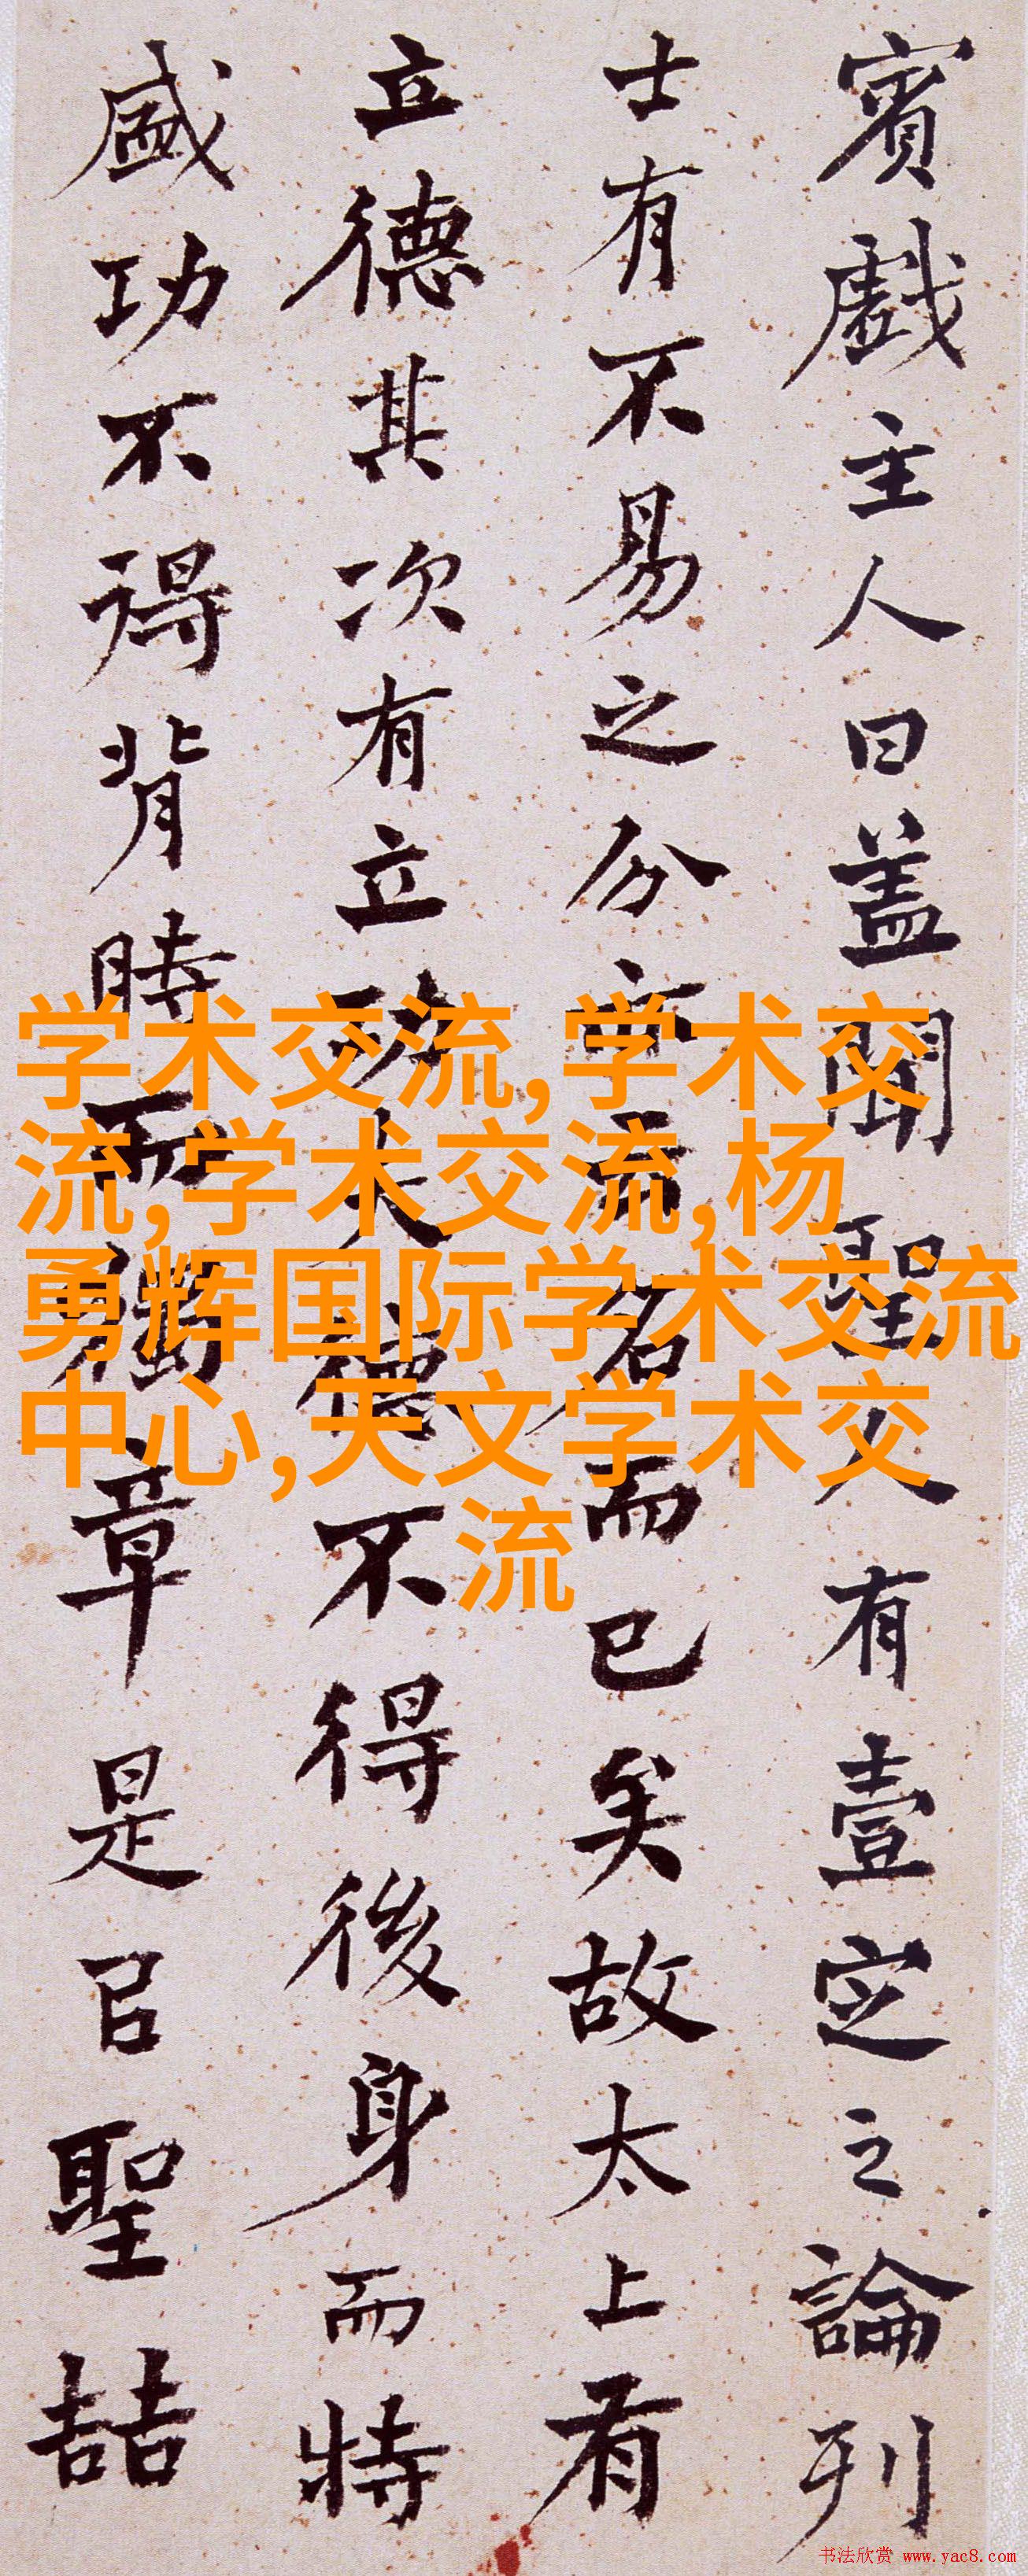 賓戲主人曰盖聞聖人有壹定之論列
士有不易之分亦云名而已矣故太上有
立德其次有立功夫德不得後身而特
盛功不得背時而獨章是㠯聖喆
学术交流,学术交
流,学术交流,杨
勇辉国际学术交流
中心,天文学术交
流
书法欣赏 www.yac8.com